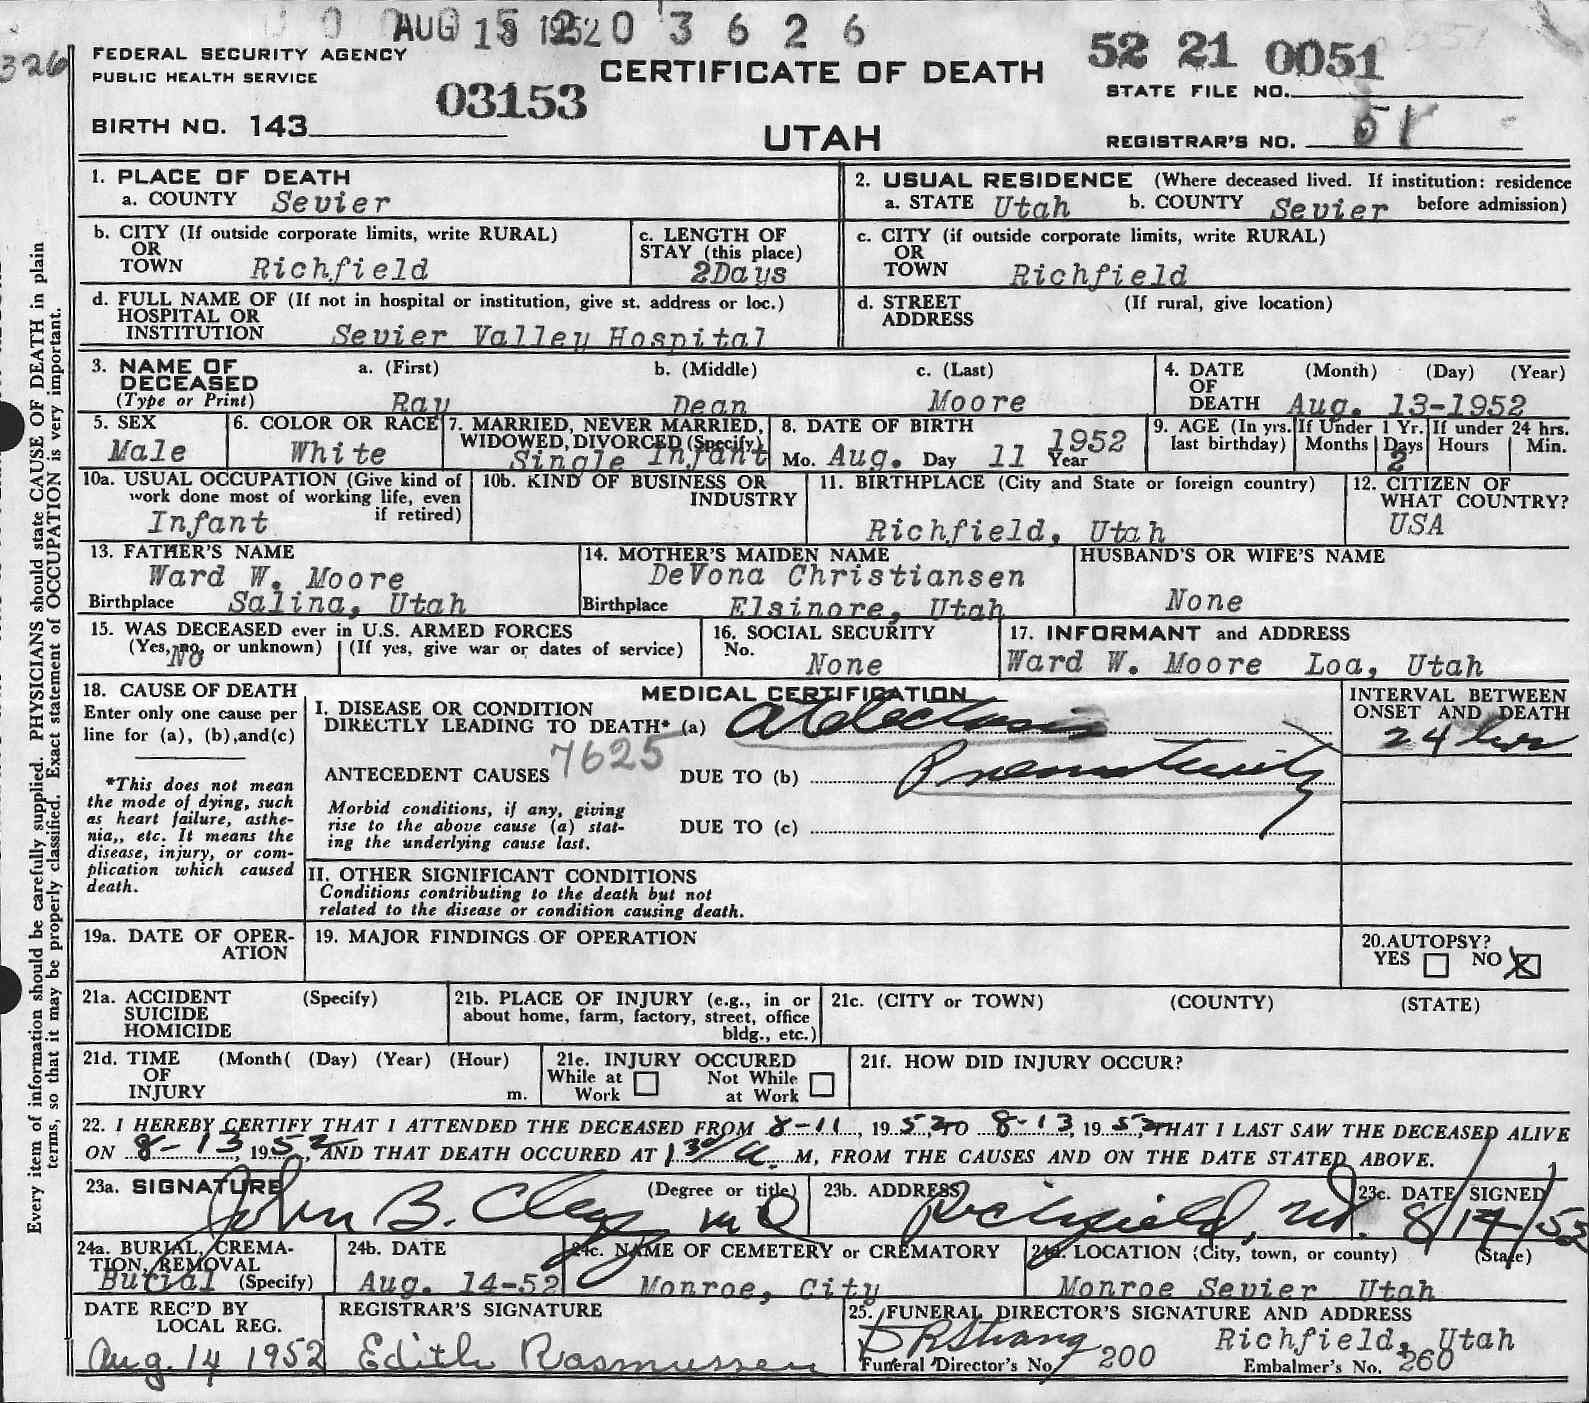 AUG 18 1952 0 3 6 2 6
326
FEDERAL SECURITY AGENCY
PUBLIC HEALTH SERVICE
CERTIFICATE OF DEATH
52 21 0051
STATE FILE NO.
BIRTH NO. 143 03153
UTAH
REGISTRAR'S NO. 51
1. PLACE OF DEATH
a. COUNTY Sevier
2. USUAL RESIDENCE (Where deceased lived. If institution: residence before admission)
a. STATE Utah b. COUNTY Sevier
b. CITY (If outside corporate limits, write RURAL)
OR
TOWN Richfield
c. LENGTH OF
STAY (this place)
2Days
c. CITY (if outside corporate limits, write RURAL)
OR
TOWN Richfield
d. FULL NAME OF (If not in hospital or institution, give st. address or loc.)
HOSPITAL OR
INSTITUTION Sevier Valley Hospital
d. STREET (If rural, give location)
ADDRESS
3. NAME OF
DECEASED
(Type or Print)
a. (First) b. (Middle) c. (Last)
Ray Dean Moore
4. DATE (Month) (Day) (Year)
OF
DEATH Aug. 13-1952
5. SEX
Male
6. COLOR OR RACE
White
7. MARRIED, NEVER MARRIED,
WIDOWED, DIVORCED (Specify)
Single Infant
8. DATE OF BIRTH
Mo. Aug. Day 11 Year 1952
9. AGE (In yrs.
last birthday)
If Under 1 Yr.
Months Days
2
If under 24 hrs.
Hours Min.
10a. USUAL OCCUPATION (Give kind of
work done most of working life, even
if retired)
Infant
10b. KIND OF BUSINESS OR
INDUSTRY
11. BIRTHPLACE (City and State or foreign country)
Richfield, Utah
12. CITIZEN OF
WHAT COUNTRY?
USA
13. FATHER'S NAME
Ward W. Moore
Birthplace Salina, Utah
14. MOTHER'S MAIDEN NAME
DeVona Christiansen
Birthplace Elsinore, Utah
HUSBAND'S OR WIFE'S NAME
None
15. WAS DECEASED ever in U.S. ARMED FORCES
(Yes, no, or unknown) (If yes, give war or dates of service)
No
16. SOCIAL SECURITY
No.
None
17. INFORMANT and ADDRESS
Ward W. Moore Loa, Utah
18. CAUSE OF DEATH
Enter only one cause per
line for (a), (b),and(c)
*This does not mean
the mode of dying, such
as heart failure, asthe-
nia,, etc. It means the
disease, injury, or com-
plication which caused
death.
MEDICAL CERTIFICATION
I. DISEASE OR CONDITION
DIRECTLY LEADING TO DEATH* (a) Atelectasis
7625
ANTECEDENT CAUSES DUE TO (b) Prematurity
Morbid conditions, if any, giving
rise to the above cause (a) stat-
ing the underlying cause last.
DUE TO (c)
II. OTHER SIGNIFICANT CONDITIONS
Conditions contributing to the death but not
related to the disease or condition causing death.
INTERVAL BETWEEN
ONSET AND DEATH
24 hrs
19a. DATE OF OPER-
ATION
19. MAJOR FINDINGS OF OPERATION
20.AUTOPSY?
YES NO X
21a. ACCIDENT (Specify)
SUICIDE
HOMICIDE
21b. PLACE OF INJURY (e.g., in or
about home, farm, factory, street, office
bldg., etc.)
21c. (CITY or TOWN) (COUNTY) (STATE)
21d. TIME (Month( (Day) (Year) (Hour)
OF
INJURY m.
21e. INJURY OCCURED
While at Work Not While at Work
21f. HOW DID INJURY OCCUR?
22. I HEREBY CERTIFY THAT I ATTENDED THE DECEASED FROM 8-11, 1952, TO 8-13, 1952, THAT I LAST SAW THE DECEASED ALIVE
ON 8-13, 1952, AND THAT DEATH OCCURED AT 1 30/A. M, FROM THE CAUSES AND ON THE DATE STATED ABOVE.
23a. SIGNATURE (Degree or title)
John B. MD
23b. ADDRESS
Richfield, Ut.
23c. DATE SIGNED
8/14/52
24a. BURIAL, CREMA-
TION, REMOVAL
Burial (Specify)
24b. DATE
Aug. 14-52
24c. NAME OF CEMETERY or CREMATORY
Monroe, City
24d. LOCATION (City, town, or county) (State)
Monroe Sevier Utah
DATE REC'D BY
LOCAL REG.
Aug. 14 1952
REGISTRAR'S SIGNATURE
Edith Rasmussen
25. FUNERAL DIRECTOR'S SIGNATURE AND ADDRESS
Richfield, Utah
Funeral Director's No. 200 Embalmer's No. 260
Every item of information should be carefully supplied. PHYSICIANS should state CAUSE OF DEATH in plain
terms, so that it may be properly classified. Exact statement of OCCUPATION is very important.